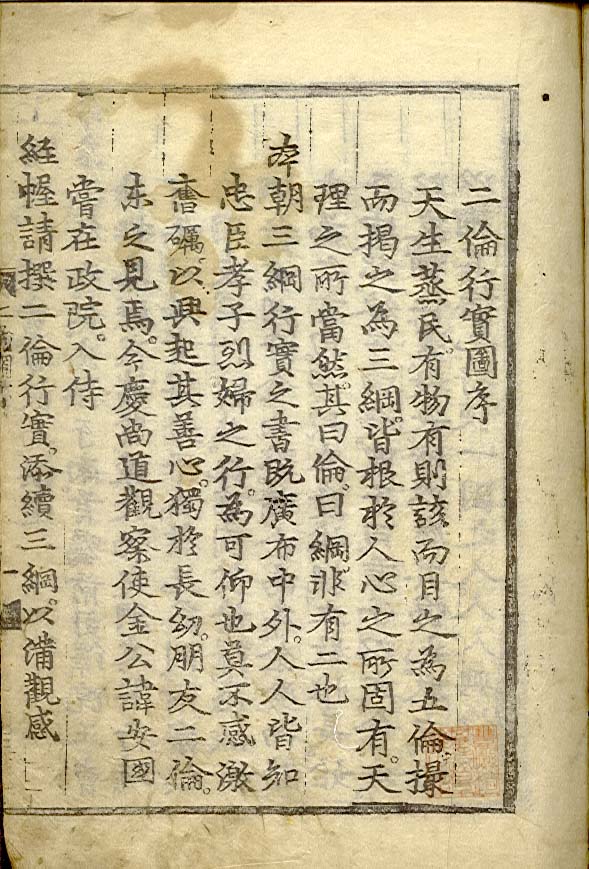 二倫行實圖序
天生蒸民有物有則該而目之為五倫撮
而揭之為三綱皆根於人心之所固有天
理之所當然其曰倫曰綱非有二也
本朝三綱行實之書旣廣布中外人人皆知
忠臣孝子烈婦之行為可仰也莫不感激
奮礪以興起其善心獨於長幼朋友二倫
未之見焉今慶尙道觀察使金公諱安國
嘗在政院入侍
經幄請撰二倫行實添續三綱以備觀感